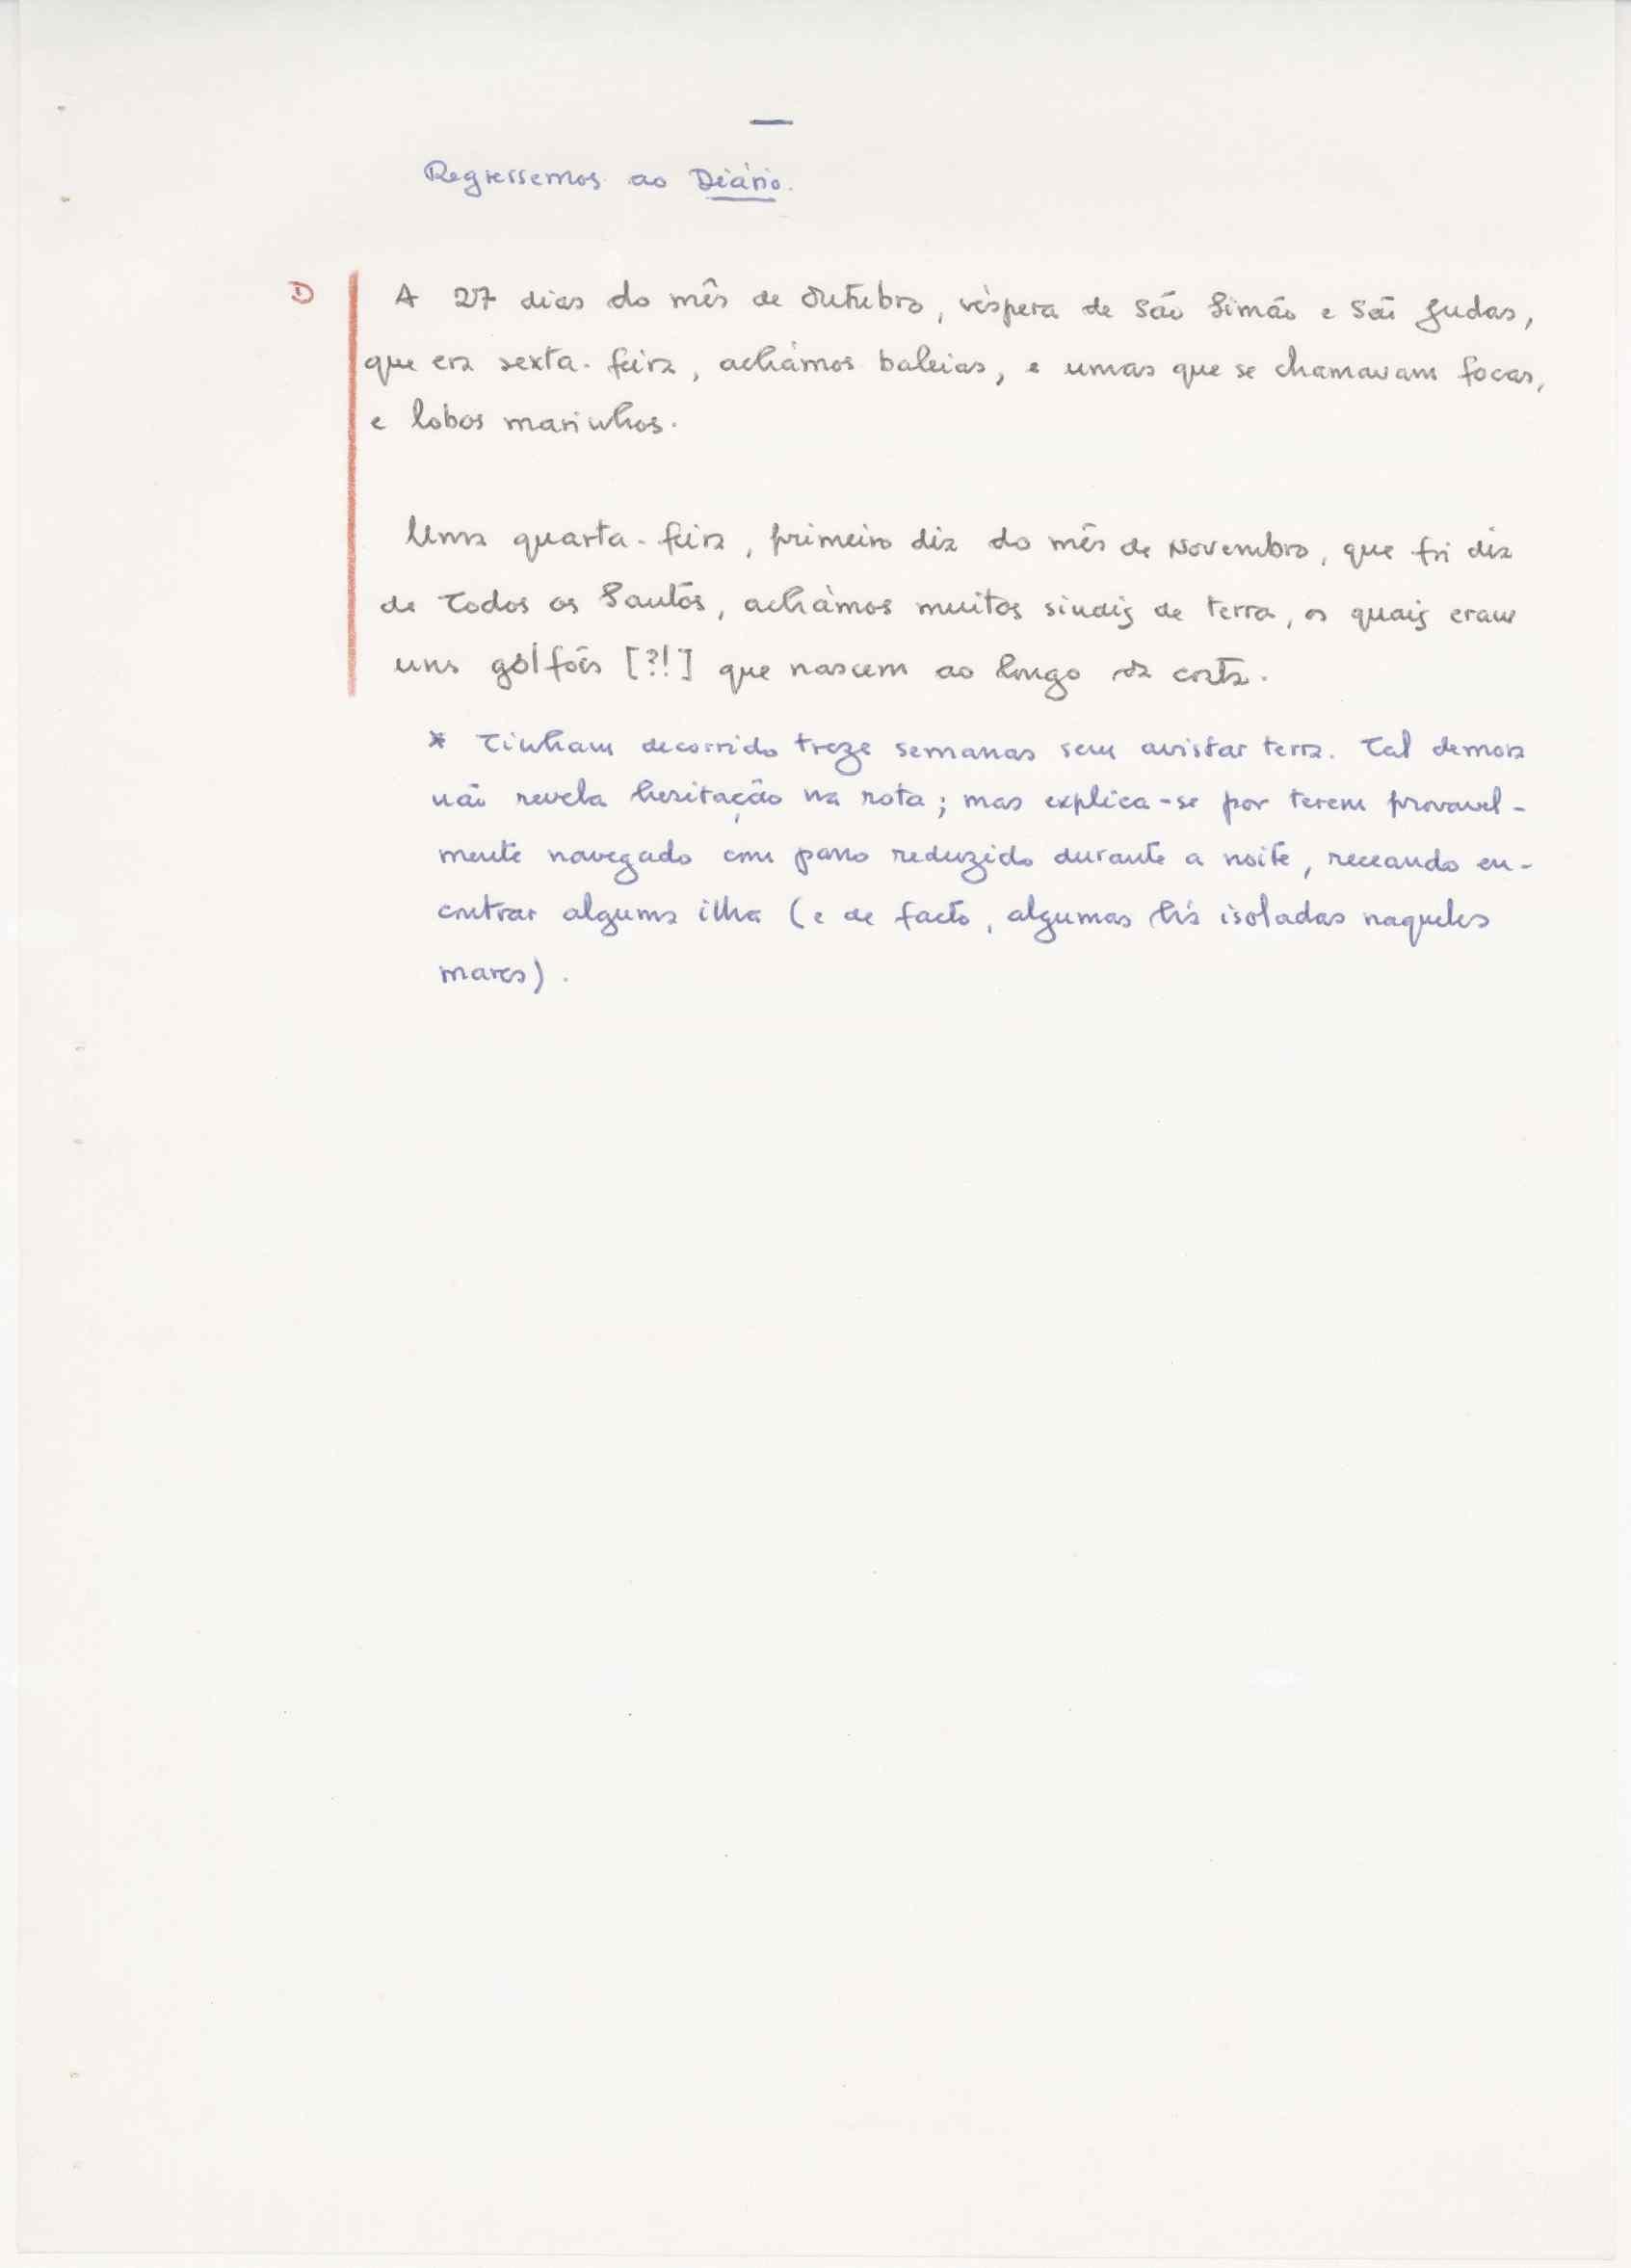 Regressemos ao Diário.
D
A 27 dias do mês de Outubro, véspera de São Simão e São Judas,
que era sexta-feira, achámos baleias, e umas que se chamavam focas,
e lobos marinhos.
Uma quarta-feira, primeiro dia do mês de Novembro, que foi dia
de Todos os Santos, achámos muitos sinais de terra, os quais eram
uns gólfõis [?!] que nascem ao longo da costa.
* Tinham decorrido treze semanas sem avistar terra. Tal demora
não revela hesitação na rota; mas explica-se por terem provavel-
mente navegado com pano reduzido durante a noite, receando en-
contrar alguma ilha (e de facto, algumas há isoladas naqueles
mares).